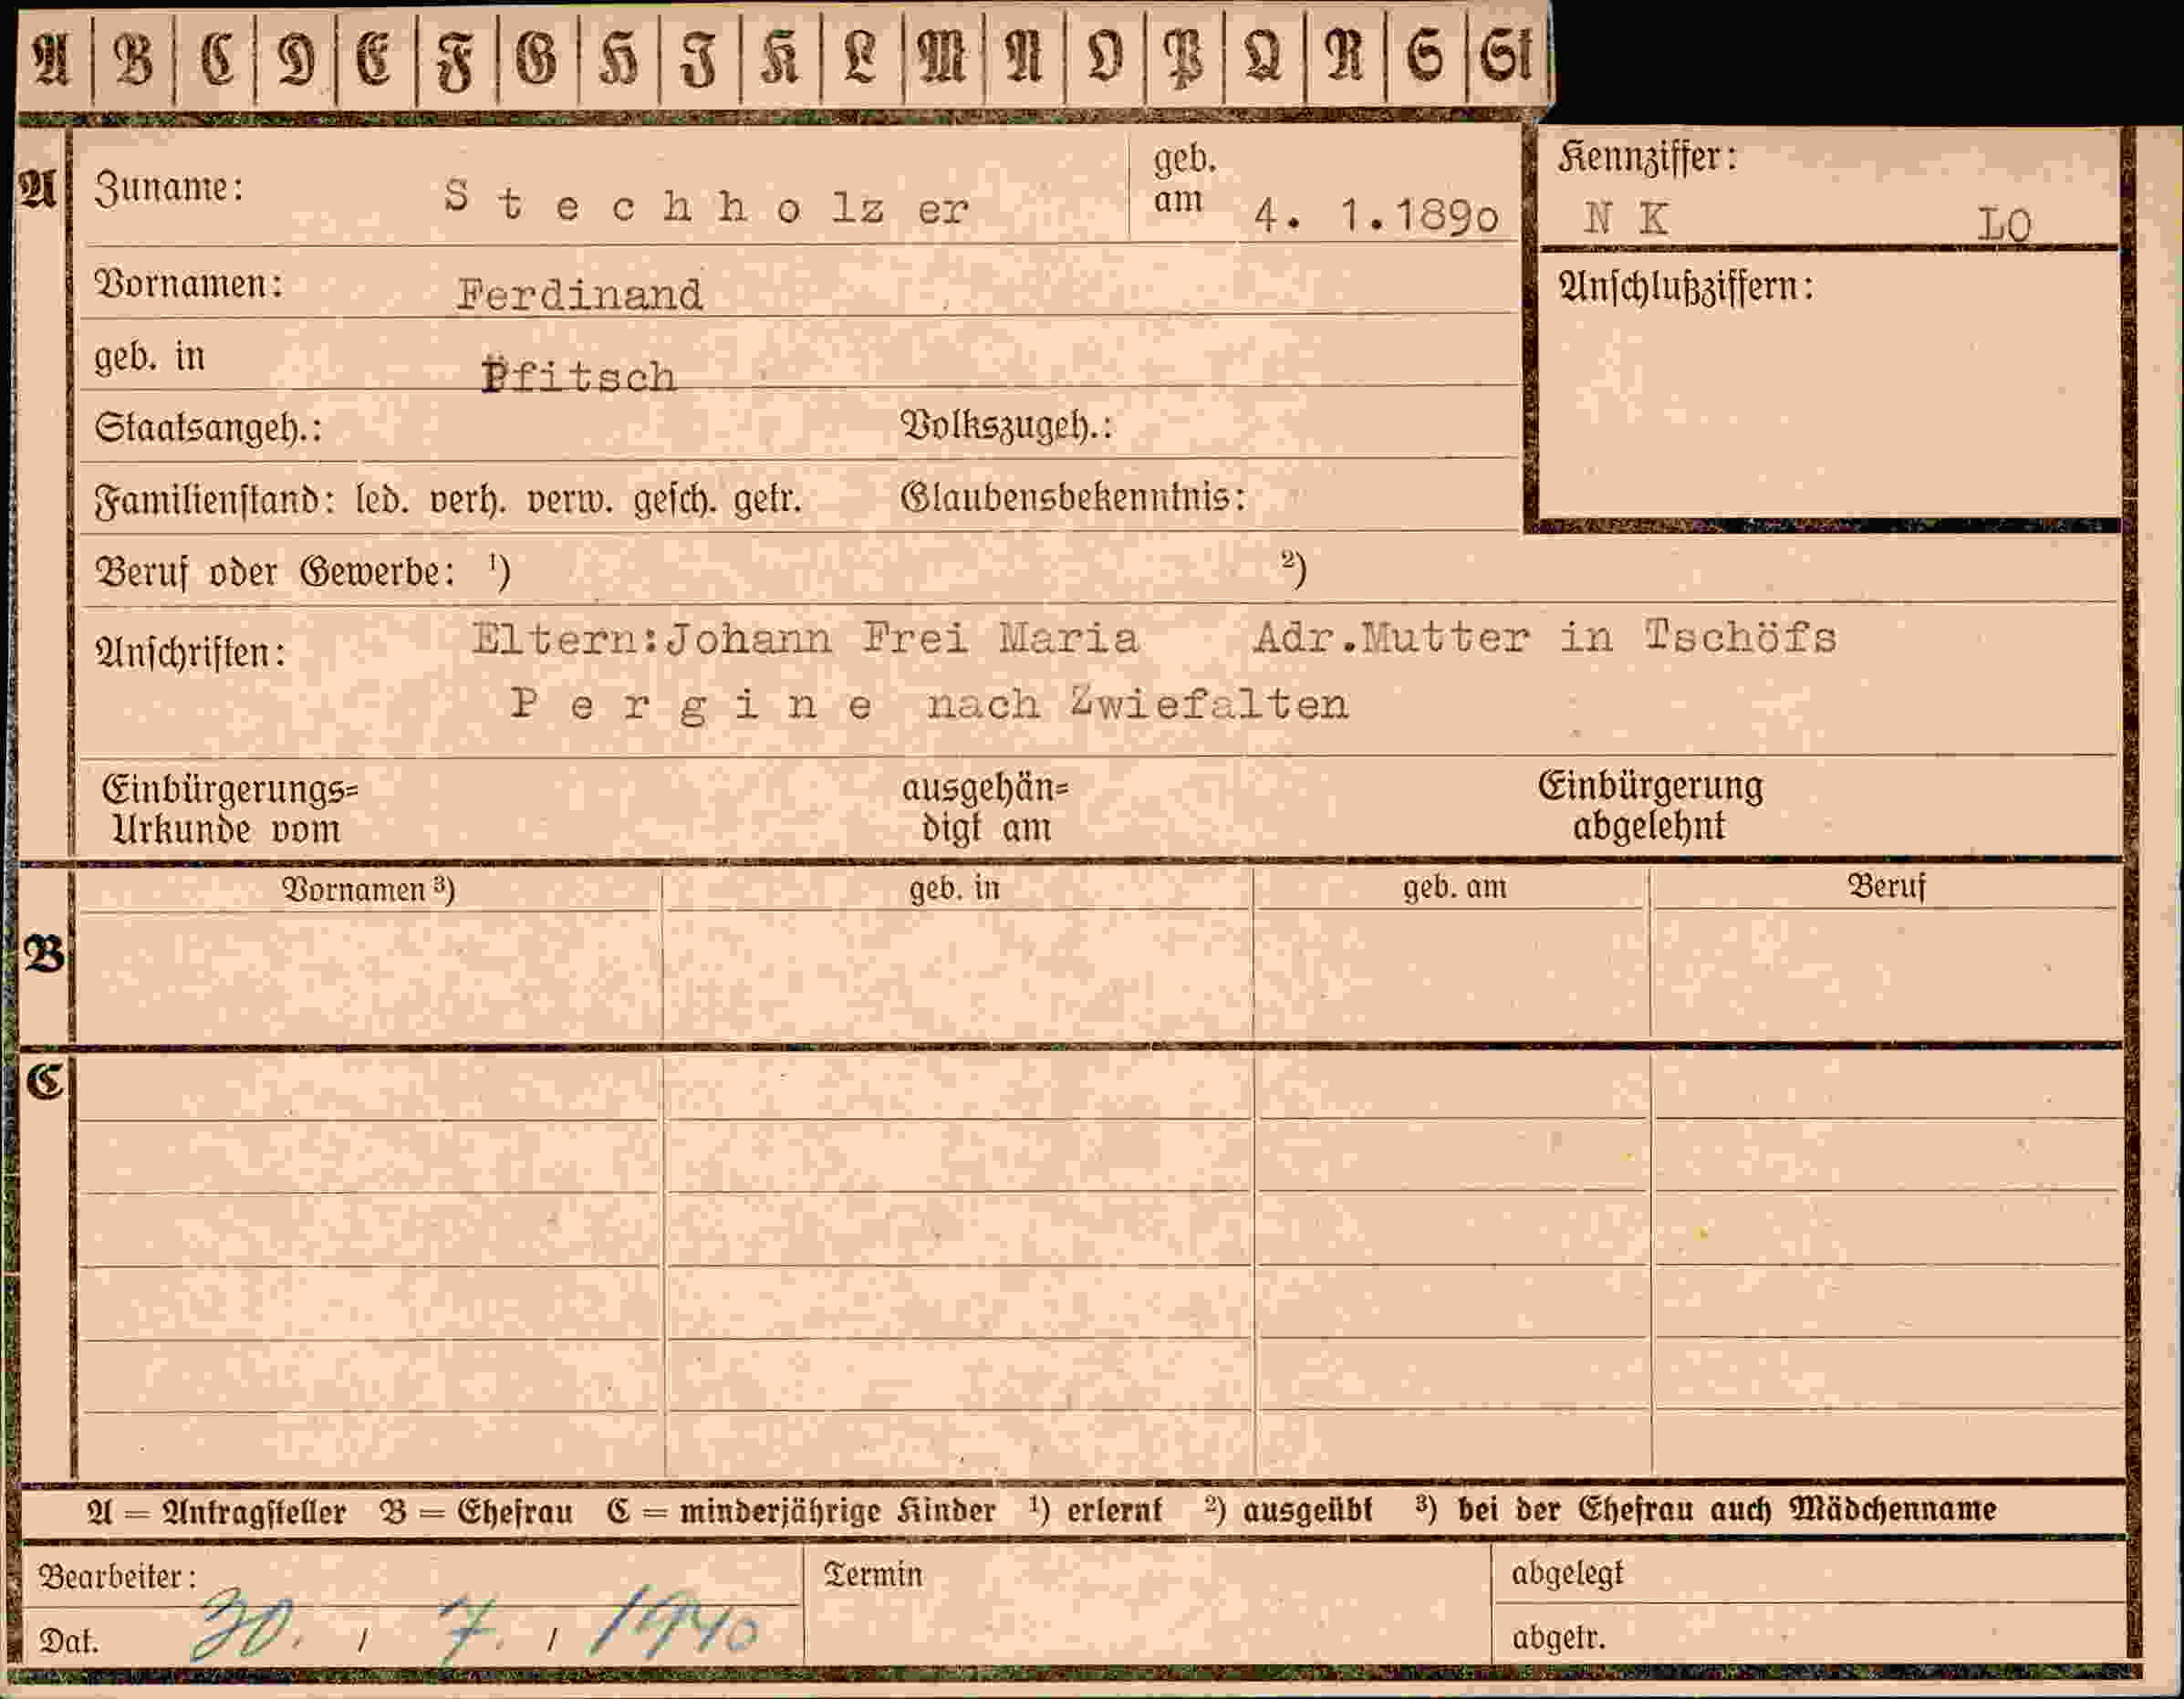 A B C D E F G H I K L M N O P Q R S St
A Zuname: Stechholzer geb. am 4. 1.1890
Kennziffer: N K LO
Vornamen: Ferdinand
Anschlußziffern:
geb. in Pfitsch
Staatsangeh.: Volkszugeh.:
Familienstand: led. verh. verw. gesch. getr. Glaubensbekenntnis:
Beruf oder Gewerbe: ¹) ²)
Anschriften: Eltern:Johann Frei Maria Adr.Mutter in Tschöfs
Pergine nach Zwiefalten
Einbürgerungs= ausgehän= Einbürgerung
Urkunde vom digt am abgelehnt
Vornamen ³) geb. in geb. am Beruf
B
C
A = Antragsteller B = Ehefrau C = minderjährige Kinder ¹) erlernt ²) ausgeübt ³) bei der Ehefrau auch Mädchenname
Bearbeiter: Termin abgelegt
Dat. 30. / 7. / 1940 abgetr.